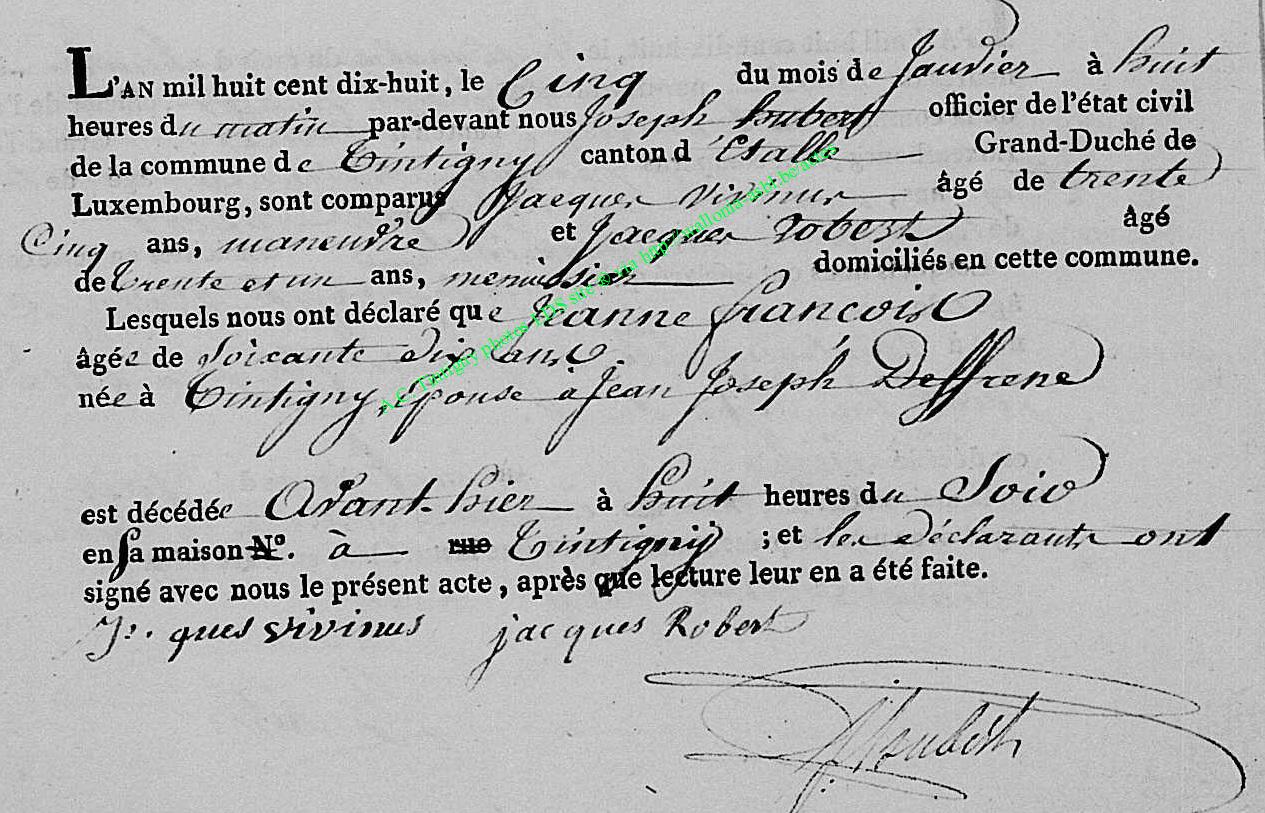 L'AN mil huit cent dix-huit, le Cinq du mois de Janvier à huit
heures du matin par-devant nous Joseph hubert officier de l'état civil
de la commune de Tintigny canton d'Etalle Grand-Duché de
Luxembourg, sont comparus Jacques vivinus âgé de trente
Cinq ans, maneuvre et Jacques Robert âgé
de trente et un ans, menuissier domiciliés en cette commune.
Lesquels nous ont déclaré que Jeanne francois
âgée de Soixante dix ans.
née à Tintigny, épouse à Jean Joseph Deffrene
est décédée Avant hier à huit heures du Soir
en sa maison N°. à rue Tintigny ; et les Déclarants ont
signé avec nous le présent acte, après que lecture leur en a été faite.
J. ques vivinus jacques Robert
hubert
A.C. Tintigny photos LDS site via http://wallonia-asbl.be/actes